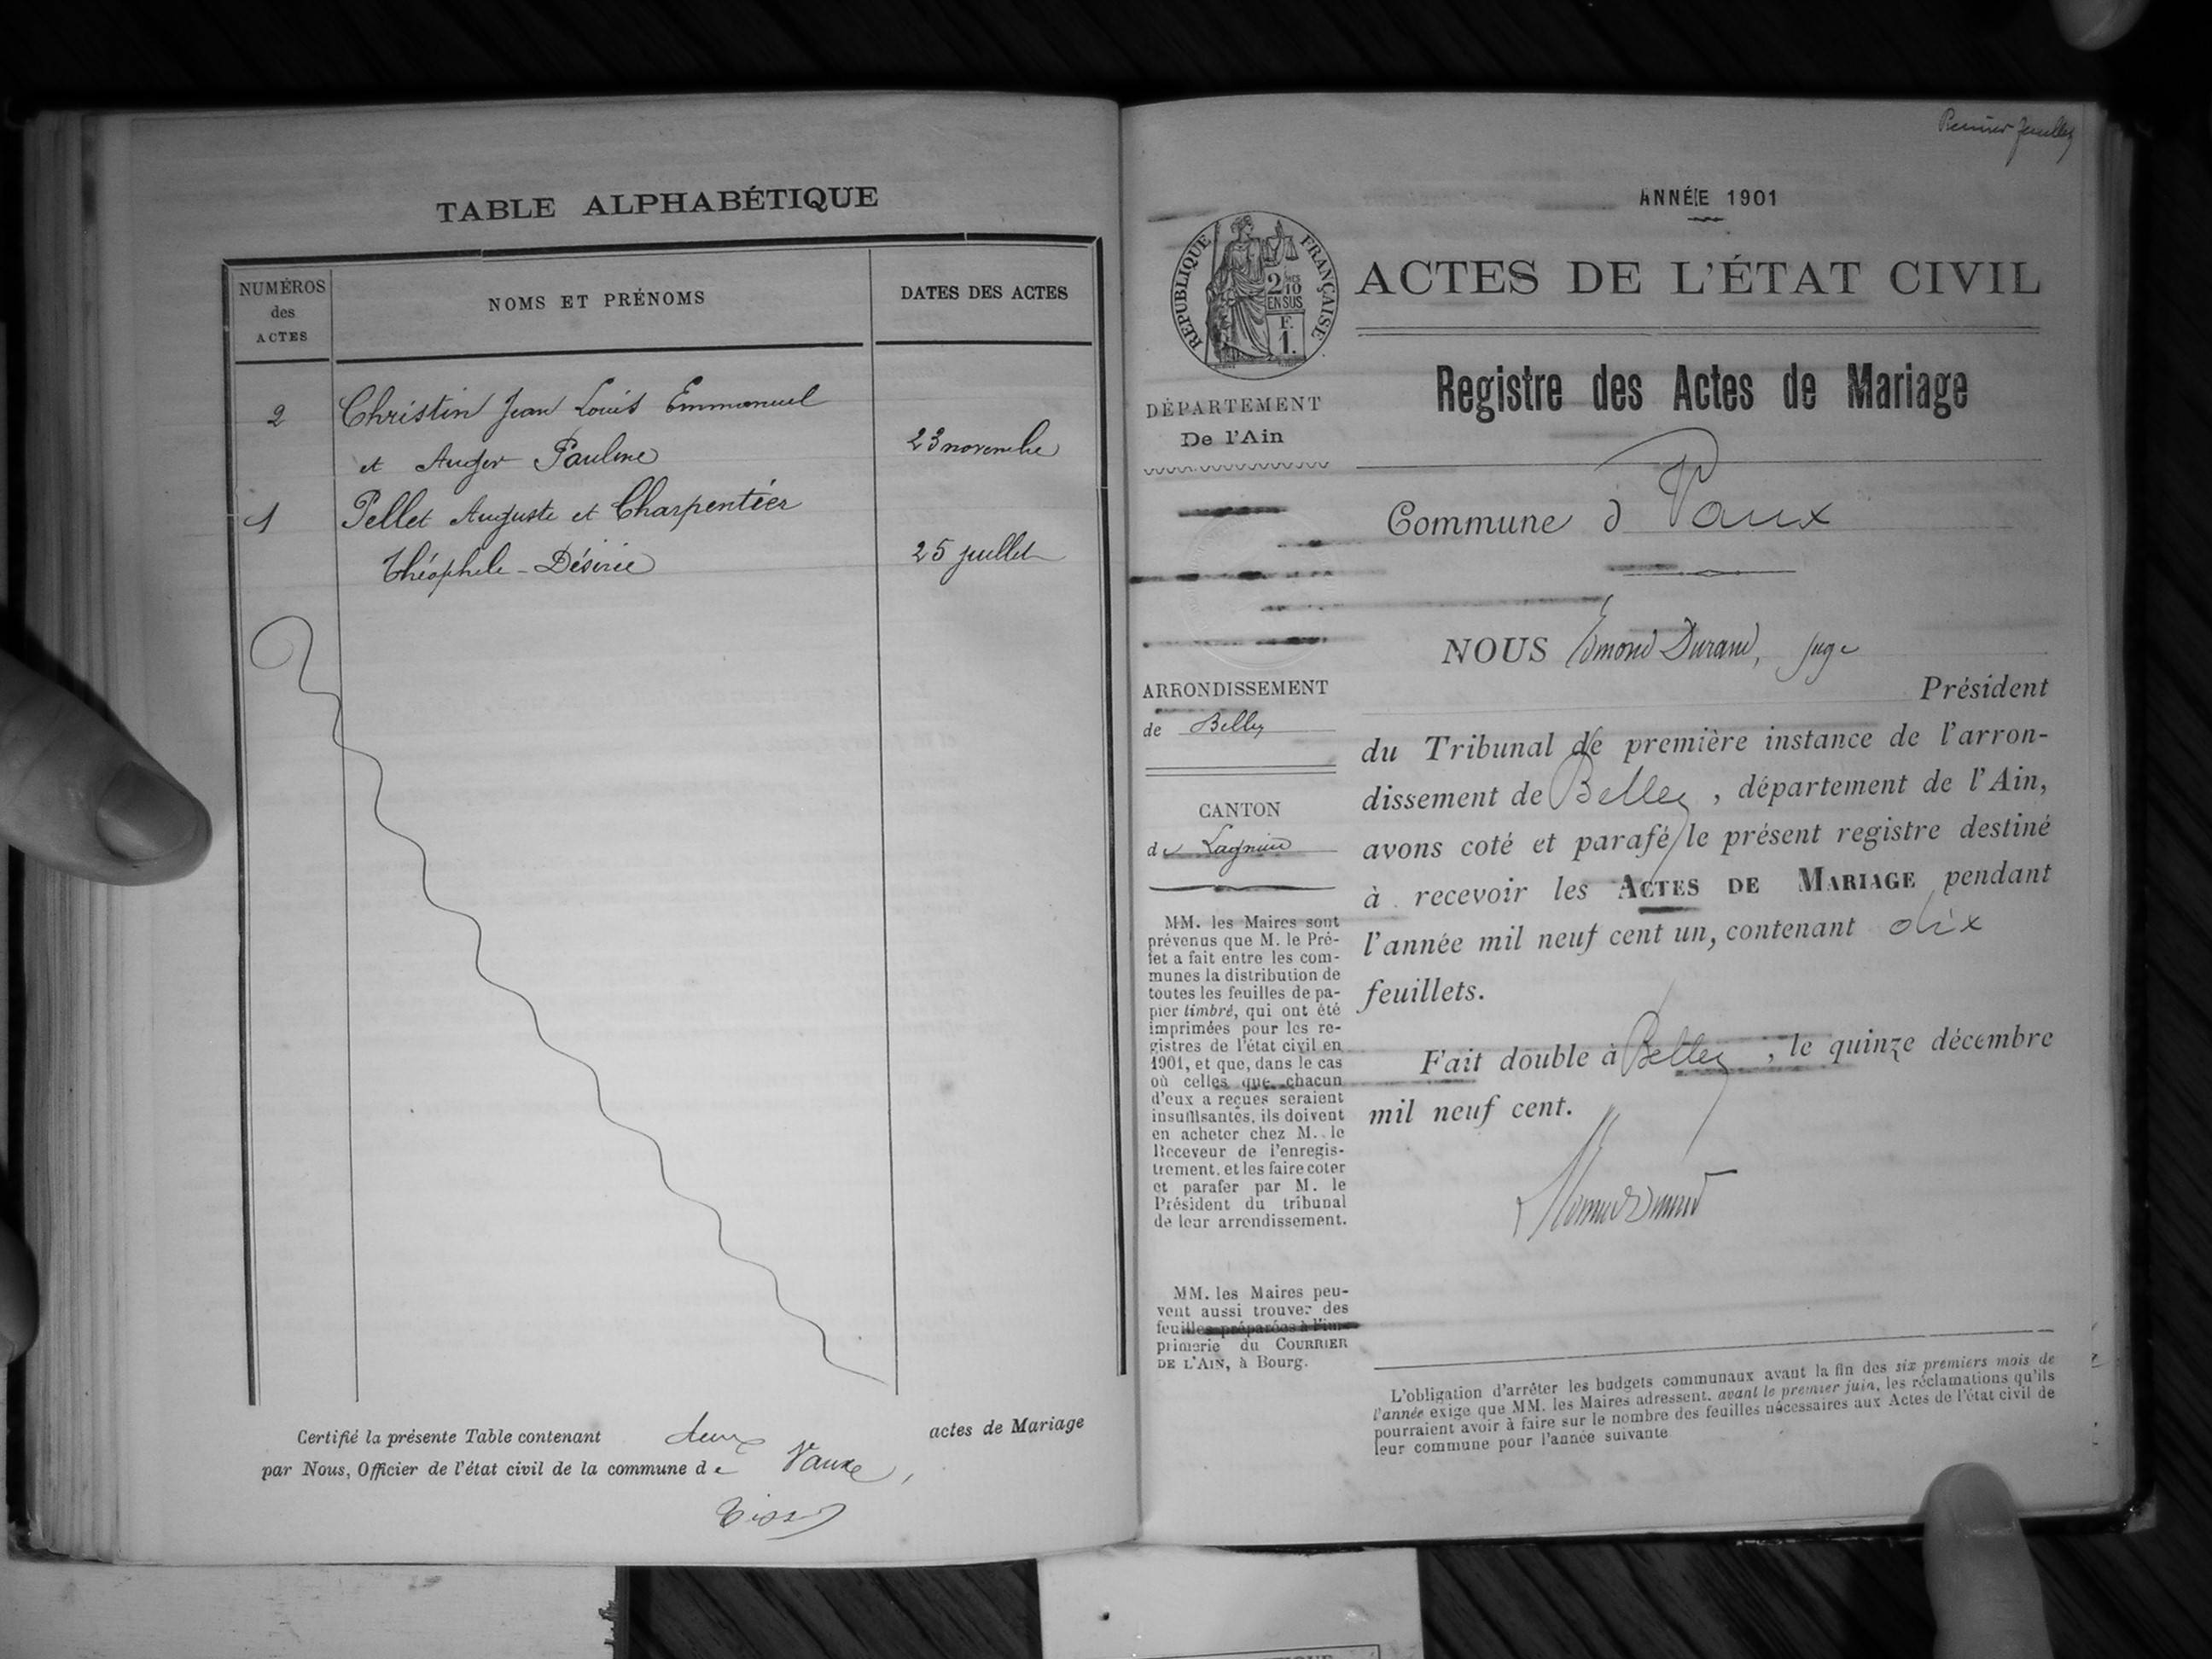 TABLE ALPHABÉTIQUE
NUMÉROS
des
ACTES
NOMS ET PRÉNOMS
DATES DES ACTES
2 Christin Jean Louis Emmanuel
et Auger Pauline 23 novembre
1 Pellet Auguste et Charpentier
Théophile - Désirée 25 juillet
Certifié la présente Table contenant deux actes de Mariage
par Nous, Officier de l'état civil de la commune de Vaux,
Premier feuillet
ANNÉE 1901
RÉPUBLIQUE FRANÇAISE
2/10
EN SUS
F.
1.
ACTES DE L'ÉTAT CIVIL
Registre des Actes de Mariage
DÉPARTEMENT
De l'Ain
Commune d Vaux
NOUS Edmond Durand, Juge
Président
du Tribunal de première instance de l'arron-
dissement de Belley, département de l'Ain,
avons coté et parafé le présent registre destiné
à recevoir les ACTES DE MARIAGE pendant
l'année mil neuf cent un, contenant dix
feuillets.
Fait double à Belley, le quinze décembre
mil neuf cent.
ARRONDISSEMENT
de Belley
CANTON
de Lagnieu
MM. les Maires sont
prévenus que M. le Pré-
fet a fait entre les com-
munes la distribution de
toutes les feuilles de pa-
pier timbré, qui ont été
imprimées pour les re-
gistres de l'état civil en
1901, et que, dans le cas
où celles que chacun
d'eux a reçues seraient
insuffisantes, ils doivent
en acheter chez M. le
Receveur de l'enregis-
trement, et les faire coter
et parafer par M. le
Président du tribunal
de leur arrondissement.
MM. les Maires peu-
vent aussi trouver des
feuilles préparées à l'im-
primerie du COURRIER
DE L'AIN, à Bourg.
L'obligation d'arrêter les budgets communaux avant la fin des six premiers mois de
l'année exige que MM. les Maires adressent, avant le premier juin, les réclamations qu'ils
pourraient avoir à faire sur le nombre des feuilles nécessaires aux Actes de l'état civil de
leur commune pour l'année suivante